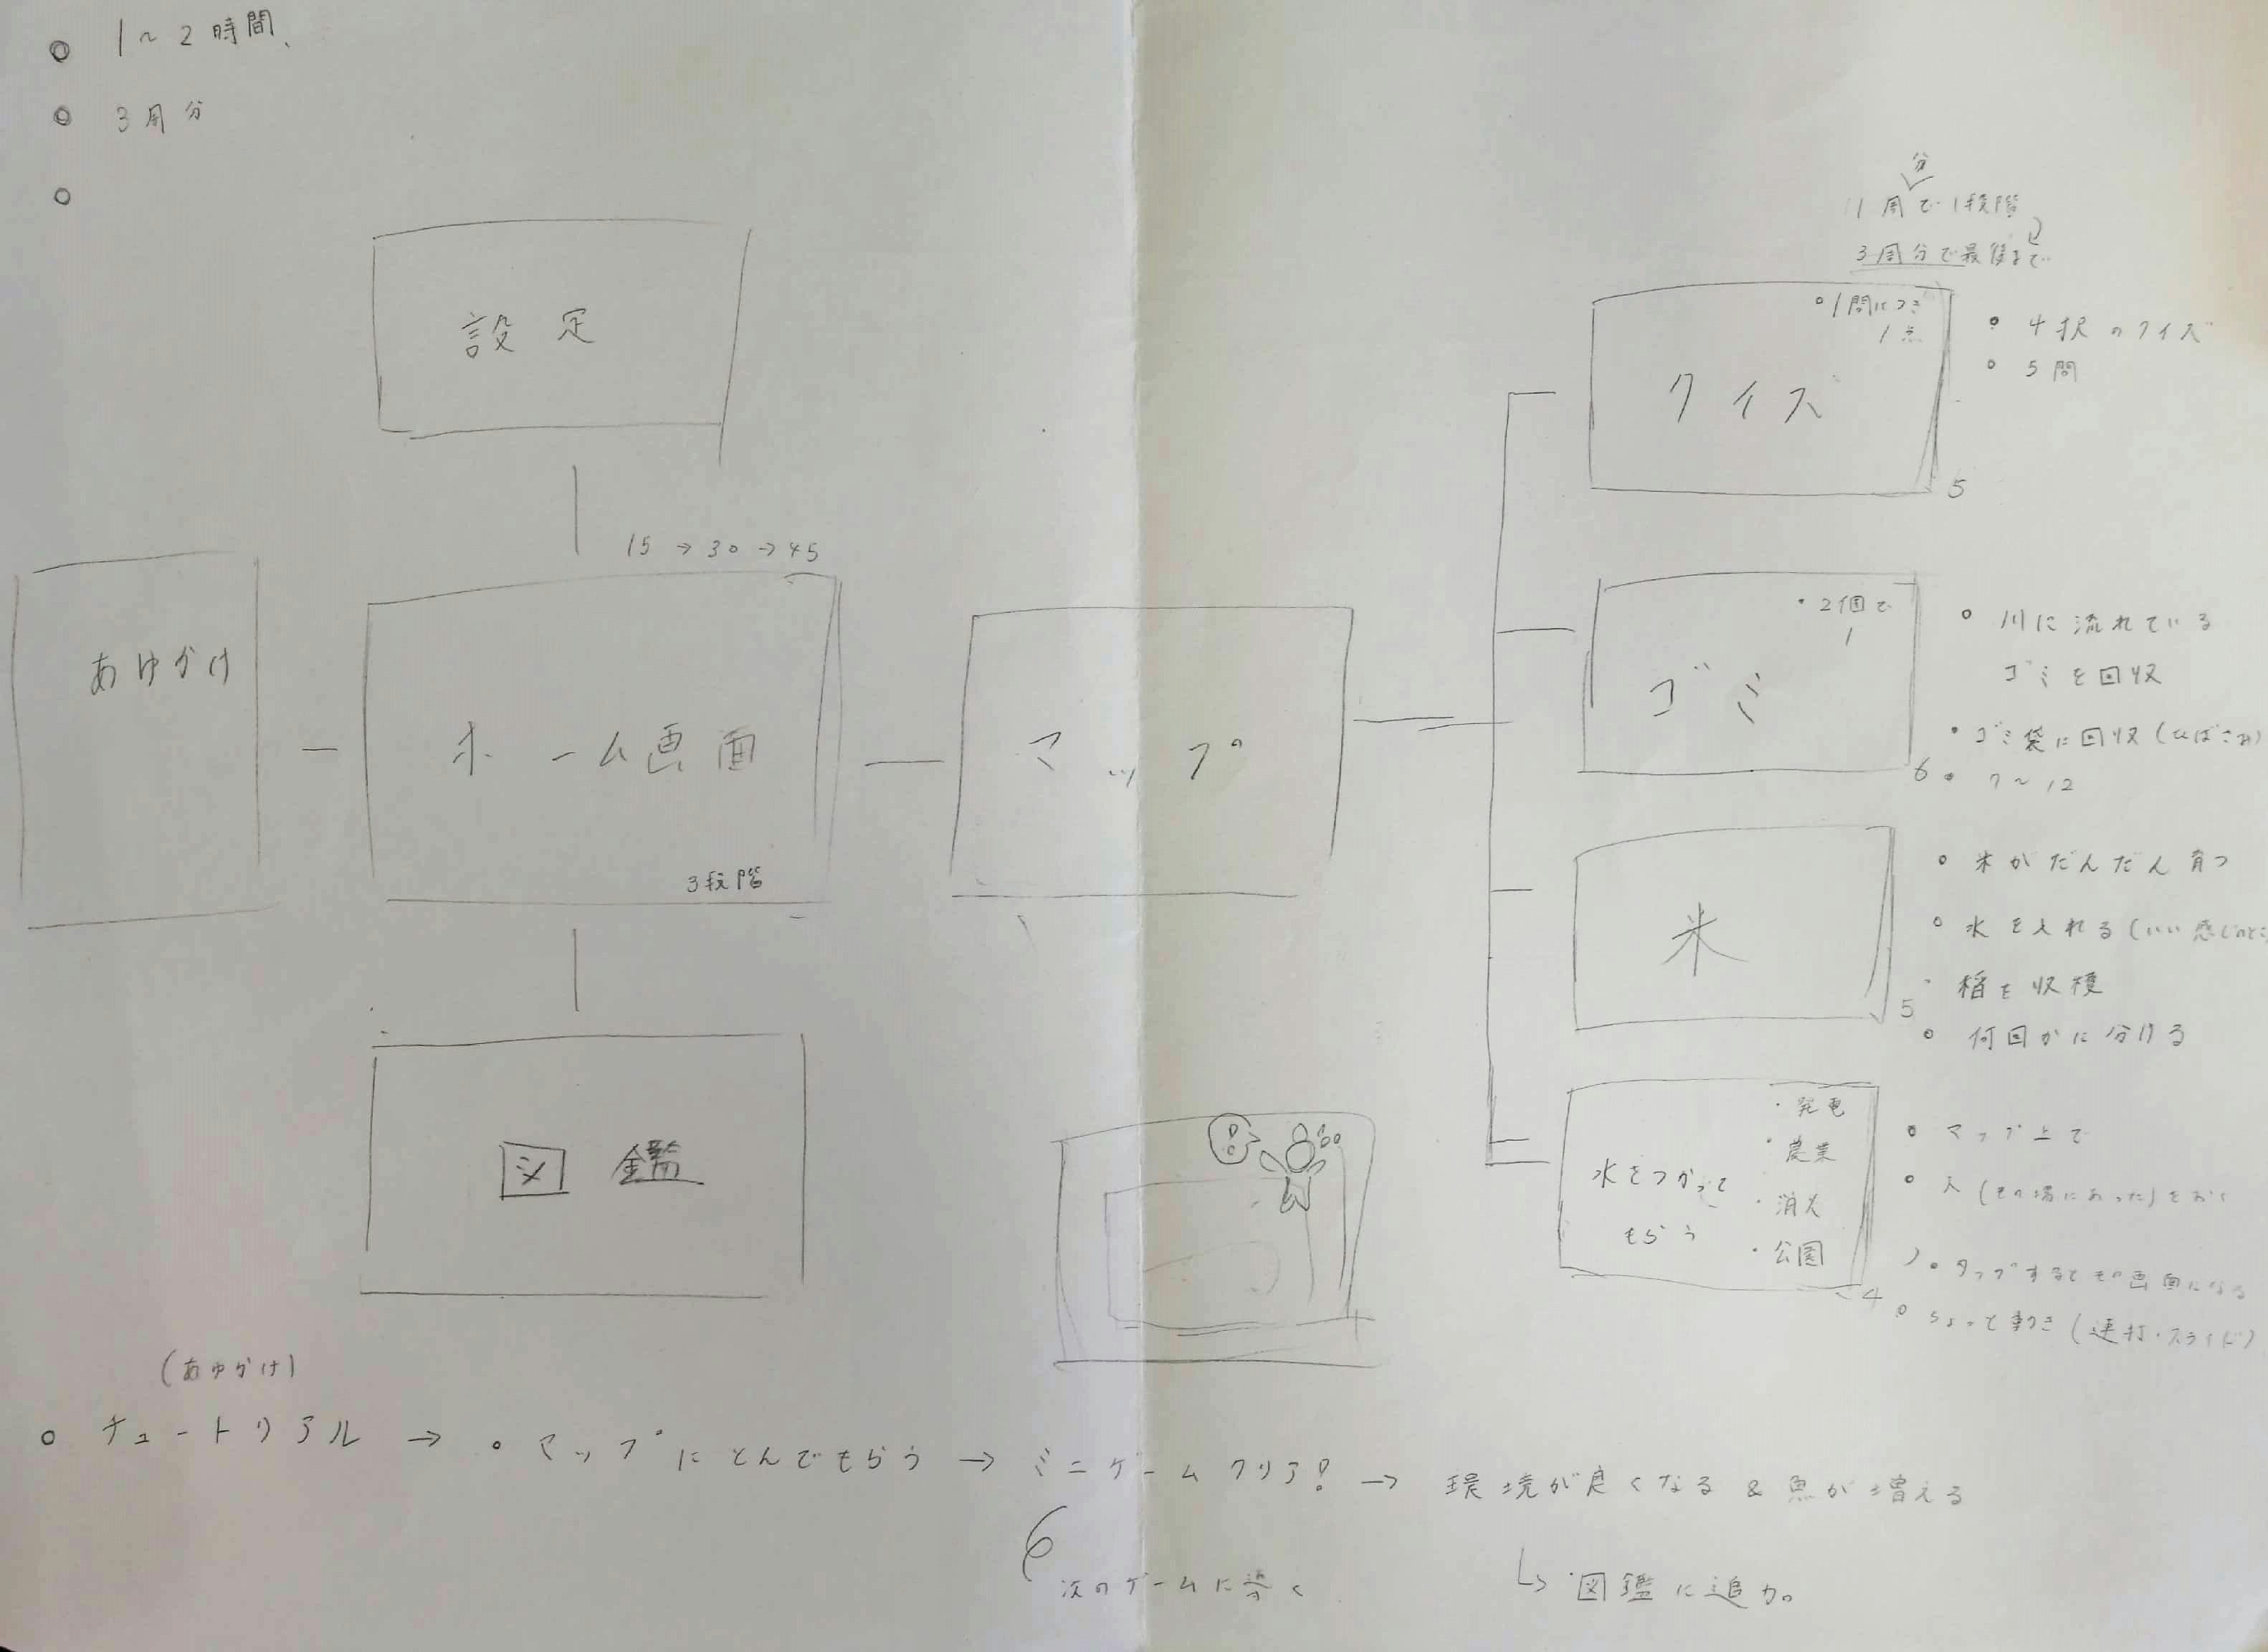 1~2時間、
3周分
分
1周で1段階
3周分で最後まで
設定
・1問につき
1点
クイズ
・4択のクイズ
・5問
5
15→30→45
あゆかけ
ホーム画面
3段階
マップ
・2個で
1
ゴミ
・川に流れている
ゴミを回収
・ゴミ袋に回収(ひばさみ)
6
・7~12
米
・米がだんだん育つ
・水を入れる(いい感じの
・稲を収穫
5
・何回かに分ける
図鑑
水をつかって
もらう
・発電
・農業
・消火
・公園
4
・マップ上で
・人(その場にあった)をおく
・タップするとその画面になる
・ちょっと動き(連打・スライド)
(あゆかけ)
・チュートリアル → ・マップにとんでもらう → ミニゲームクリア! → 環境が良くなる & 魚が増える
次のゲームに導く
↳ ・図鑑に追加。